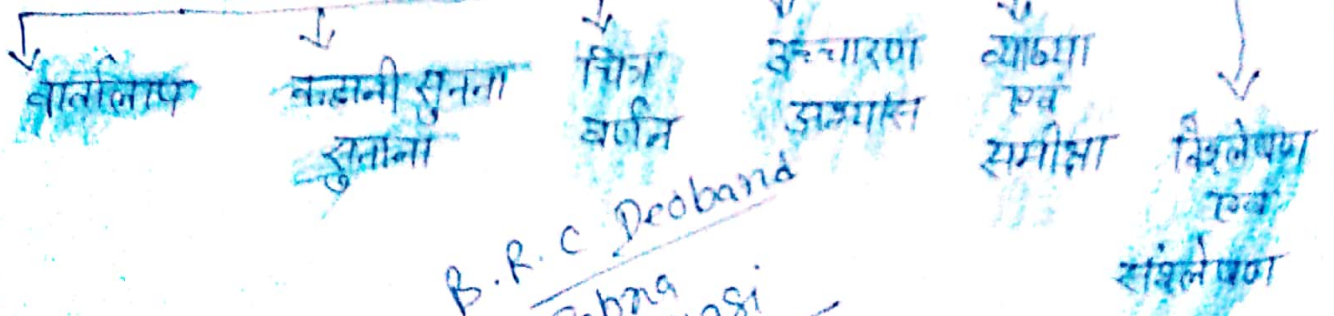 वार्तालाप
कहानी सुनना
सुनाना
चित्र
वर्णन
उच्चारण
अभ्यास
व्याख्या
एवं
समीक्षा
विश्लेषण
एवं
संश्लेषण
B.R.C Deoband